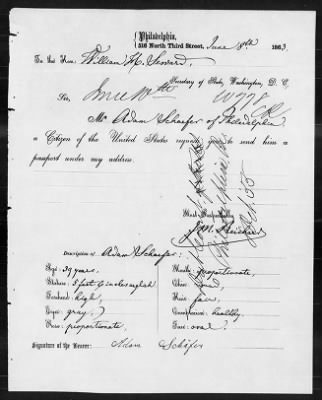 Philadelphia,
516 North Third Street, June 18th 1863
To the Hon. William H. Seward
Secretary of State, Washington, D. C.
Sir,
Mr Adam Schaefer of Philadelphia
a Citizen of the United States requests you to send him a
passport under my address.
Most Respectfully
Description of Adam Schaefer:
Age: 39 years.
Stature: 5 feet 6 inches english
Forehead: high,
Eyes: gray.
Nose: proportionate,
Mouth: proportionate,
Chin: round,
Hair: fair,
Complexion: healthy,
Face: oval.
Signature of the Bearer: Adam Schäfer